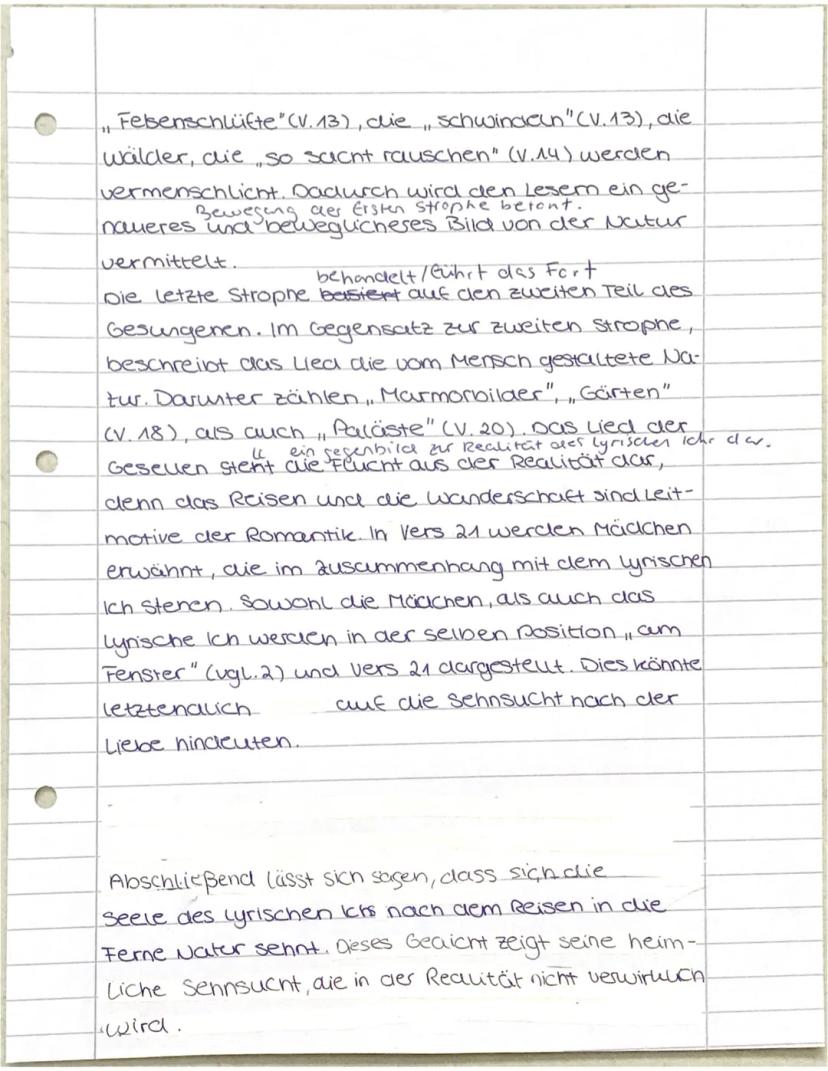 „Felsenschlüfte" (V.13), die „schwindeln" (V.13), die
Wälder, die „so sacht rauschen" (V.14) werden
vermenschlicht. Dadurch wird den Lesern ein ge-
Bewegung der Ersten Strophe betont.
naueres und beweglicheres Bild von der Natur
vermittelt.
behandelt/führt das Fort
Die letzte Strophe basiert auf den zweiten Teil des
Gesungenen. Im Gegensatz zur zweiten Strophe,
beschreibt das Lied die vom Mensch gestaltete Na-
tur. Darunter zählen „Marmorbilder", „Gärten"
(V.18), als auch „Paläste" (V.20). Das Lied der
ein gegenbild zur Realität des lyrischen Ichs dar.
Gesellen steht die Flucht aus der Realität dar,
denn das Reisen und die Wanderschaft sind Leit-
motive der Romantik. In Vers 21 werden Mädchen
erwähnt, die im Zusammenhang mit dem lyrischen
Ich stehen. Sowohl die Mädchen, als auch das
lyrische Ich werden in der selben Position „am
Fenster" (vgl.2) und Vers 21 dargestellt. Dies könnte
letztendlich auf die Sehnsucht nach der
Liebe hindeuten.
Abschließend lässt sich sagen, dass sich die
Seele des lyrischen Ichs nach dem Reisen in die
Ferne Natur sehnt. Dieses Gedicht zeigt seine heim-
liche Sehnsucht, die in der Realität nicht verwirklich
wird.